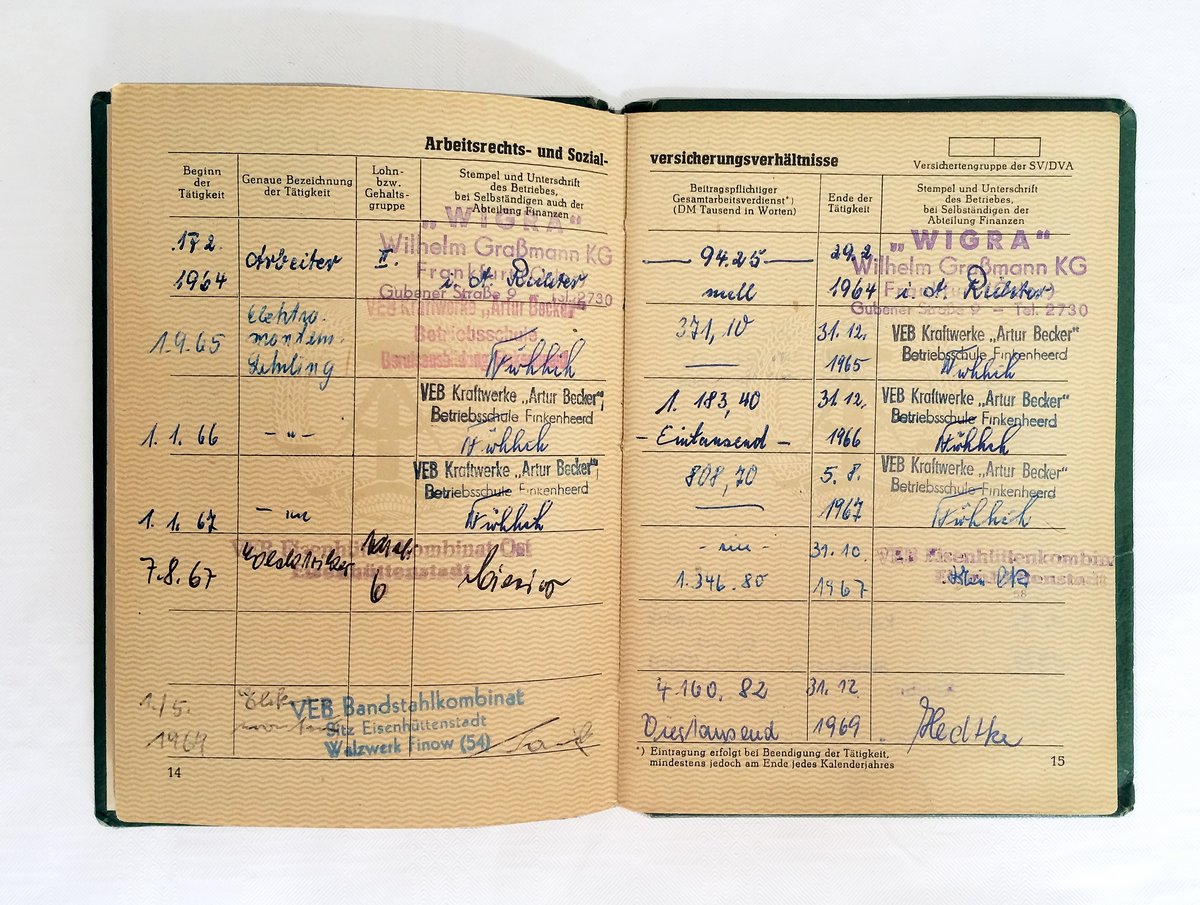 Arbeitsrechts- und Sozial-
Beginn
der
Tätigkeit
Genaue Bezeichnung
der Tätigkeit
Lohn-
bzw.
Gehalts-
gruppe
Stempel und Unterschrift
des Betriebes,
bei Selbständigen auch der
Abteilung Finanzen
"WIGRA"
Wilhelm Graßmann KG
Gubener Straße 9 – Tel. 2730
1964
Arbeiter
II.
i. A. Richter
1.9.65
Elektro-
Lehrling
VEB Kraftwerke „Artur Becker"
Betriebsschule
1. 1. 66
- " -
VEB Kraftwerke „Artur Becker",
Betriebsschule Finkenheerd
1. 1. 67
VEB Kraftwerke „Artur Becker",
Betriebsschule Finkenheerd
7.8.67
6
VEB Eisenhüttenkombinat Ost
Eisenhüttenstadt
1./5.
1969
VEB Bandstahlkombinat
Sitz Eisenhüttenstadt
Walzwerk Finow (54)
14
versicherungsverhältnisse
Versichertengruppe der SV/DVA
Beitragspflichtiger
Gesamtarbeitsverdienst*)
(DM Tausend in Worten)
Ende der
Tätigkeit
Stempel und Unterschrift
des Betriebes,
bei Selbständigen der
Abteilung Finanzen
"WIGRA"
Wilhelm Graßmann KG
Gubener Straße 9 – Tel. 2730
94.25
null
29.2.
1964
i. A. Richter
371,10
31.12.
1965
VEB Kraftwerke „Artur Becker"
Betriebsschule Finkenheerd
1. 183,40
- Eintausend -
31.12.
1966
VEB Kraftwerke „Artur Becker"
Betriebsschule Finkenheerd
808,70
5. 8.
1967
VEB Kraftwerke „Artur Becker"
Betriebsschule Finkenheerd
1.346.80
31.10
1967
VEB Eisenhüttenkombin
4 160, 82
Viertausend
31.12
1969
Hedtke
*) Eintragung erfolgt bei Beendigung der Tätigkeit,
mindestens jedoch am Ende jedes Kalenderjahres
15